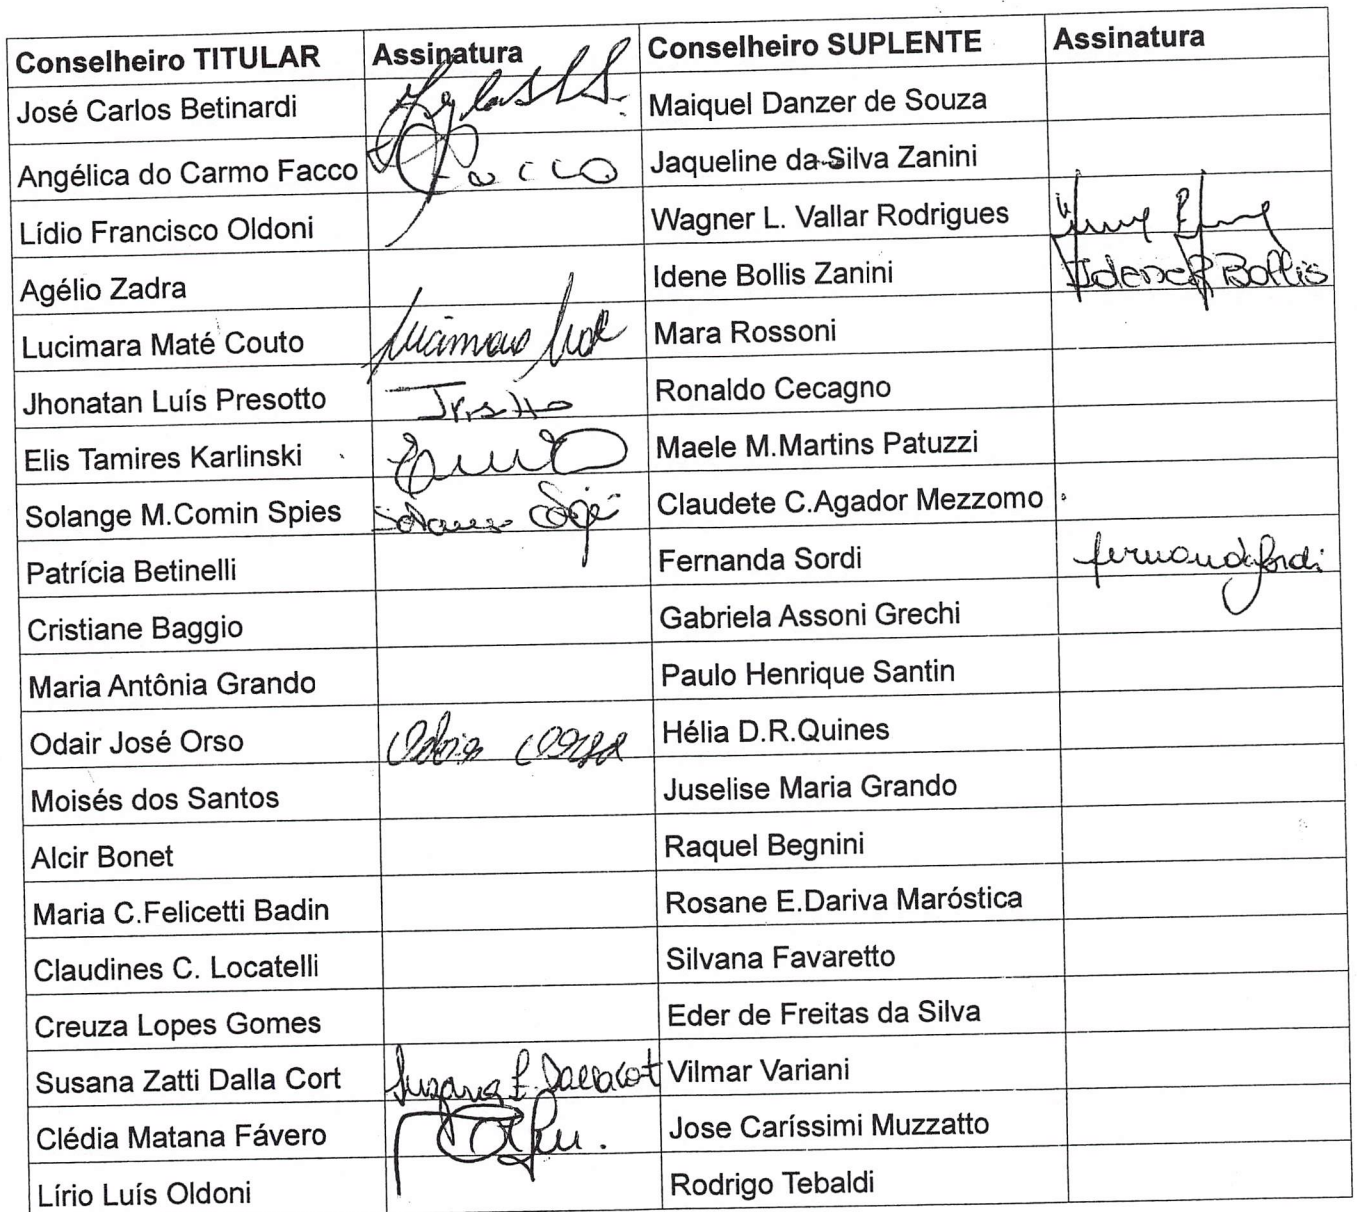 Conselheiro TITULAR Assinatura Conselheiro SUPLENTE Assinatura
José Carlos Betinardi Maiquel Danzer de Souza
Angélica do Carmo Facco Facco Jaqueline da Silva Zanini
Lídio Francisco Oldoni Wagner L. Vallar Rodrigues
Agélio Zadra Idene Bollis Zanini Bollis
Lucimara Maté Couto Mara Rossoni
Jhonatan Luís Presotto Ronaldo Cecagno
Elis Tamires Karlinski Maele M.Martins Patuzzi
Solange M.Comin Spies Claudete C.Agador Mezzomo
Patrícia Betinelli Fernanda Sordi fernanda Sordi
Cristiane Baggio Gabriela Assoni Grechi
Maria Antônia Grando Paulo Henrique Santin
Odair José Orso Hélia D.R.Quines
Moisés dos Santos Juselise Maria Grando
Alcir Bonet Raquel Begnini
Maria C.Felicetti Badin Rosane E.Dariva Maróstica
Claudines C. Locatelli Silvana Favaretto
Creuza Lopes Gomes Eder de Freitas da Silva
Susana Zatti Dalla Cort Vilmar Variani
Clédia Matana Fávero Jose Caríssimi Muzzatto
Lírio Luís Oldoni Rodrigo Tebaldi